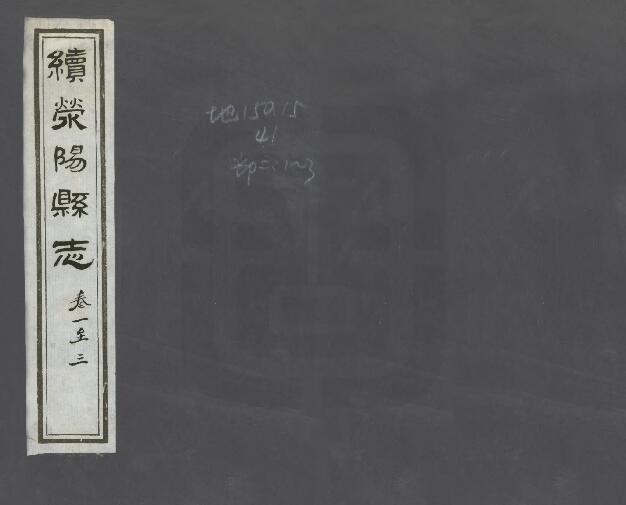 續滎陽縣志
卷一至三
地150.15
41
部二:1~3